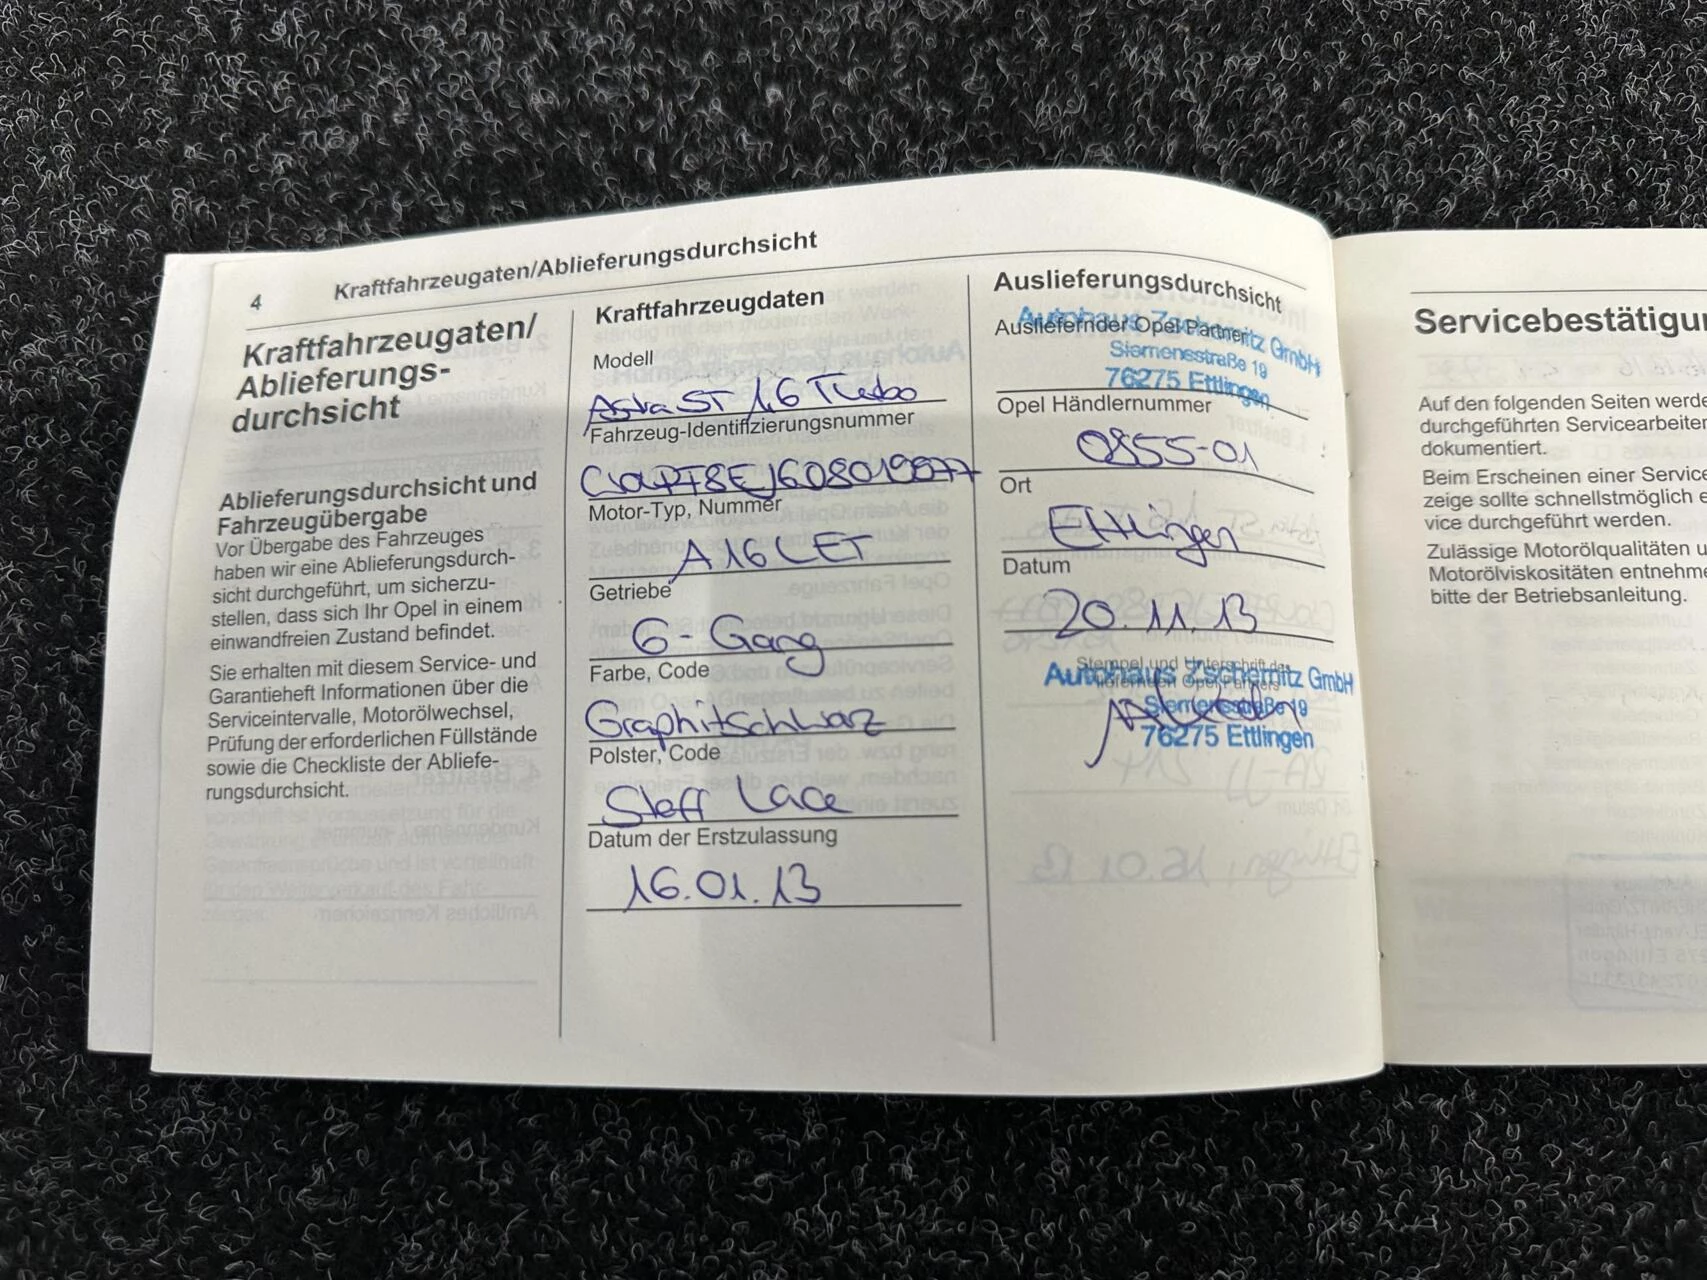 4
Kraftfahrzeugaten/Ablieferungsdurchsicht
Kraftfahrzeugaten/
Ablieferungs-
durchsicht
Ablieferungsdurchsicht und
Fahrzeugübergabe
Vor Übergabe des Fahrzeuges
haben wir eine Ablieferungsdurch-
sicht durchgeführt, um sicherzu-
stellen, dass sich Ihr Opel in einem
einwandfreien Zustand befindet.
Sie erhalten mit diesem Service- und
Garantieheft Informationen über die
Serviceintervalle, Motorölwechsel,
Prüfung der erforderlichen Füllstände
sowie die Checkliste der Abliefe-
rungsdurchsicht.
Kraftfahrzeugdaten
Modell
Astra ST 1,6 Turbo
Fahrzeug-Identifizierungsnummer
Motor-Typ, Nummer
A16LET
Getriebe
6-Gang
Farbe, Code
Graphitschwarz
Polster, Code
Stoff Lace
Datum der Erstzulassung
16.01.13
Auslieferungsdurchsicht
Ausliefernder Opel Partner
Autohaus Zschernitz GmbH
Siemensstraße 19
76275 Ettlingen
Opel Händlernummer
0855-01
Ort
Ettlingen
Datum
20.11.13
Stempel und Unterschrift des
Autohaus Zschernitz GmbH
Siemensstraße 19
76275 Ettlingen
Servicebestätigu
Auf den folgenden Seiten werde
durchgeführten Servicearbeiter
dokumentiert.
Beim Erscheinen einer Service
zeige sollte schnellstmöglich e
vice durchgeführt werden.
Zulässige Motorölqualitäten u
Motorölviskositäten entnehme
bitte der Betriebsanleitung.